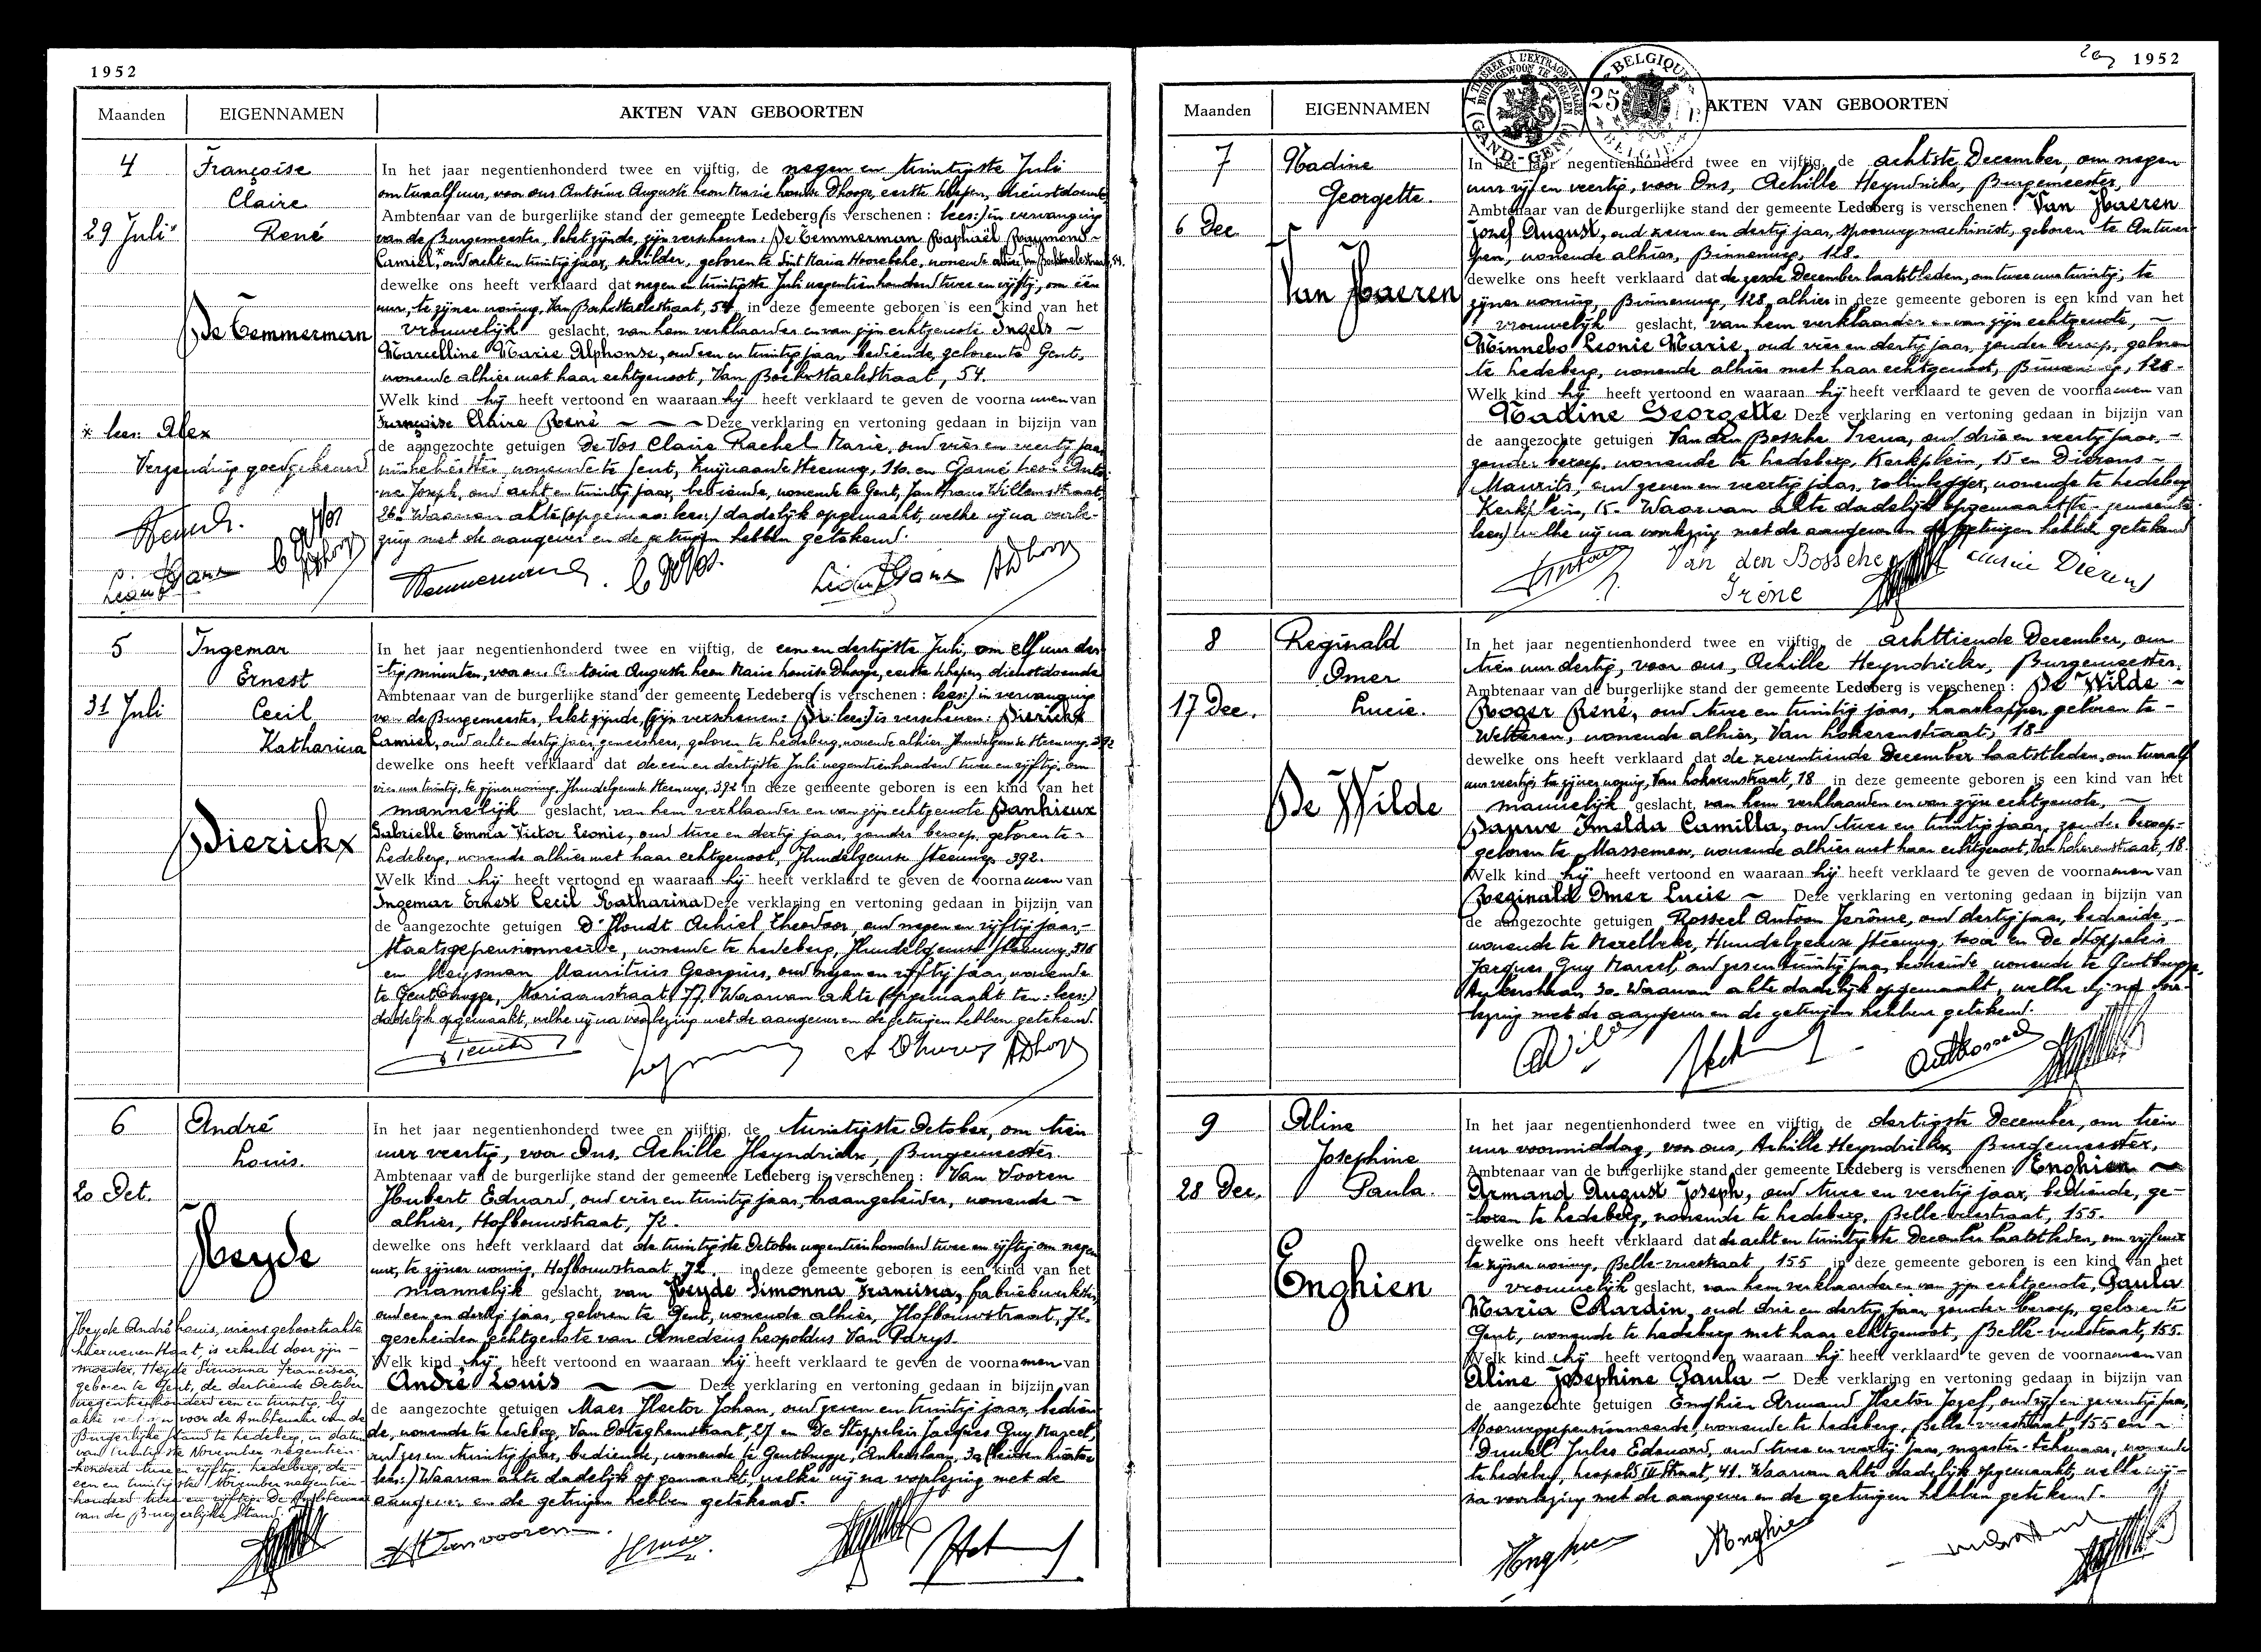 1952
Maanden EIGENNAMEN AKTEN VAN GEBOORTEN
4
29 Juli
Françoise
Claire
René
De Temmerman
x lees: Alex
Verzending goedgekeurd
In het jaar negentienhonderd twee en vijftig, de negen en twintigste Juli
om twaalf uur, voor ons Antoine Auguste Leon Marie Louise Dhooge, eerste schepen, dienstdoende
Ambtenaar van de burgerlijke stand der gemeente Ledeberg (is verschenen: lees:) in vervanging
van de Burgemeester, belet zijnde, zijn verschenen: De Temmerman Raphaël Raymond ~
Camiel,* oud acht en twintig jaar, schilder, geboren te Sint Maria Hoorebeke, wonende alhier Van Bockstaelestraat, 54.
dewelke ons heeft verklaard dat negen en twintigste Juli negentienhonderd twee en vijftig, om één
uur, te zijner woning, Van Bockstaelestraat, 54, in deze gemeente geboren is een kind van het
vrouwelijk geslacht, van hem verklaarder en van zijn echtgenote Ingels ~
Marcelline Marie Alphonse, oud een en twintig jaar bediende, geboren te Gent,
wonende alhier met haar echtgenoot, Van Bockstaelestraat, 54.
Welk kind hij heeft vertoond en waaraan hij heeft verklaard te geven de voornamen van
Françoise Claire René ~ ~ ~ Deze verklaring en vertoning gedaan in bijzijn van
de aangezochte getuigen De Vos Claire Rachel Marie, oud vier en veertig jaar
wonende te Gent, 110. en
Joseph, oud acht en twintig jaar, bediende, wonende te Gent, Jan Frans Willemsstraat,
26. Waarvan akte (opgemaa: lees:) dadelijk opgemaakt, welke wij na voorle-
zing met de aangever en de getuigen hebben getekend.
5
31 Juli
Ingemar
Ernest
Cecil
Katharina
Dierickx
In het jaar negentienhonderd twee en vijftig, de een en dertigste Juli, om elf uur der-
tig minuten, voor ons Antoine Auguste Leon Marie Louise Dhooge, eerste schepen, dienstdoende
Ambtenaar van de burgerlijke stand der gemeente Ledeberg (is verschenen: lees:) in vervanging
van de Burgemeester, belet zijnde, (zijn verschenen: De: lees:) is verschenen: Dierickx
Camiel, oud acht en dertig jaar, geneesheer, geboren te Ledeberg, wonende alhier, Hundelgemse Steenweg, 392
dewelke ons heeft verklaard dat de een en dertigste Juli negentienhonderd twee en vijftig, om
vier uur twintig, te zijner woning, Hundelgemse Steenweg, 392 in deze gemeente geboren is een kind van het
mannelijk geslacht, van hem verklaarder en van zijn echtgenote Danhieux
Gabrielle Emma Victor Leonie, oud twee en dertig jaar, zonder beroep, geboren te ~
Ledeberg, wonende alhier met haar echtgenoot, Hundelgemse Steenweg, 392.
Welk kind hij heeft vertoond en waaraan hij heeft verklaard te geven de voornamen van
Ingemar Ernest Cecil Katharina Deze verklaring en vertoning gedaan in bijzijn van
de aangezochte getuigen D'Hondt Achiel Theodoor, oud negen en vijftig jaar, -
Staatsgepensionneerde, wonende te Ledeberg, Hundelgemse Steenweg, 316
en Meysman Mauritius Georgius, oud negen en vijftig jaar, wonende
te Gentbrugge, Moriaanstraat, 77. Waarvan akte (opgemaakt ten: lees:)
dadelijk opgemaakt, welke wij na voorlezing met de aangever en de getuigen hebben getekend.
6
20 Oct.
André
Louis.
Heyde
Heyde André Louis, wiens geboorteakte
hiernevenstaat, is erkend door zijn -
moeder, Heyde Simonna Francisca,
geboren te Gent, de dertiende October
negentienhonderd een en twintig, bij
akte verleden voor de Ambtenaar van de
Burgerlijke Stand te Ledeberg, in datum
van twintigste November negentien-
honderd twee en vijftig. Ledeberg, de
een en twintigste November negentien-
honderd twee en vijftig. De Ambtenaar
van de Burgerlijke Stand.
In het jaar negentienhonderd twee en vijftig, de twintigste October, om tien
uur veertig, voor Ons, Achille Heyndrickx, Burgemeester.
Ambtenaar van de burgerlijke stand der gemeente Ledeberg is verschenen: Van Vooren
Hubert Eduard, oud vier en twintig jaar, kraangeleider, wonende ~
alhier, Hofbouwstraat, 72.
dewelke ons heeft verklaard dat de twintigste October negentienhonderd twee en vijftig om negen
uur, te zijner woning, Hofbouwstraat 72. in deze gemeente geboren is een kind van het
mannelijk geslacht, van Heyde Simonna Francisca, fabriekwerkster,
oud een en dertig jaar, geboren te Gent, wonende alhier, Hofbouwstraat, 72,
gescheiden echtgenote van Amedeus Leopoldus Van Parys.
Welk kind hij heeft vertoond en waaraan hij heeft verklaard te geven de voornamen van
André Louis ~ ~ Deze verklaring en vertoning gedaan in bijzijn van
de aangezochte getuigen Maes Hector Johan, oud zeven en twintig jaar, bedien-
de, wonende te Ledeberg, Van Ooteghemstraat, 27 en De Stoppelein Jacques Guy Marcel,
oud zes en twintig jaar, bediende, wonende te Gentbrugge, Ankerslaan, 3a
lees:) Waarvan akte dadelijk opgemaakt, welke wij na voorlezing met de
aangever en de getuigen hebben getekend.
HVanvooren
1952
Maanden EIGENNAMEN AKTEN VAN GEBOORTEN
À TIMBRER À L'EXTRAORDINAIRE
BUITENGEWOON TE ZEGELEN
GAND - GENT
BELGIQUE
25
BELGIË
7
6 Dec.
Nadine
Georgette.
Van Haeren
In het jaar negentienhonderd twee en vijftig, de achtste December, om negen
uur vijf en veertig, voor Ons, Achille Heyndrickx, Burgemeester,
Ambtenaar van de burgerlijke stand der gemeente Ledeberg is verschenen: Van Haeren
Jozef August, oud zeven en dertig jaar, spoorwegmachinist, geboren te Antwer-
pen, wonende alhier, Binnenweg, 128.
dewelke ons heeft verklaard dat de zesde December laatstleden, om twee uur twintig, te
zijner woning, Binnenweg, 128, alhier in deze gemeente geboren is een kind van het
vrouwelijk geslacht, van hem verklaarder en van zijn echtgenote, ~
Minnebo Leonie Marie, oud vier en dertig jaar, zonder beroep, geboren
te Ledeberg, wonende alhier met haar echtgenoot, Binnenweg, 128.
Welk kind hij heeft vertoond en waaraan hij heeft verklaard te geven de voornamen van
Nadine Georgette Deze verklaring en vertoning gedaan in bijzijn van
de aangezochte getuigen Van den Bossche Irena, oud drie en veertig jaar, -
zonder beroep, wonende te Ledeberg, Kerkplein, 15 en Dierens -
Maurits, oud zeven en veertig jaar, wonende te Ledeberg
Kerkplein, 15. Waarvan akte dadelijk opgemaakt
lees) welke wij na voorlezing met de aangever en de getuigen hebben getekend
Van den Bossche
Irène
Dierens
8
17 Dec.
Reginald
Omer
Lucie.
De Wilde
In het jaar negentienhonderd twee en vijftig, de achttiende December, om
tien uur dertig, voor ons, Achille Heyndrickx, Burgemeester.
Ambtenaar van de burgerlijke stand der gemeente Ledeberg is verschenen: De Wilde ~
Roger René, oud twee en twintig jaar, haarkapper, geboren te -
Wetteren, wonende alhier, Van Lokerenstraat, 18
dewelke ons heeft verklaard dat de zeventiende December laatstleden, om twaalf
uur veertig, te zijner woning, Van Lokerenstraat, 18 in deze gemeente geboren is een kind van het
mannelijk geslacht, van hem verklaarder en van zijn echtgenote, ~
Pauwe Imelda Camilla, oud twee en twintig jaar, zonder beroep-
geboren te Massemen, wonende alhier met haar echtgenoot, Van Lokerenstraat, 18.
Welk kind hij heeft vertoond en waaraan hij heeft verklaard te geven de voornamen van
Reginald Omer Lucie ~ Deze verklaring en vertoning gedaan in bijzijn van
de aangezochte getuigen Rosseel Antoon Jerôme, oud dertig jaar, bediende -
wonende te Merelbeke, Hundelgemse Steenweg, en De Stoppelein
Jacques Guy Marcel, oud zes en twintig jaar, bediende, wonende te Gentbrugge,
Ankerslaan, 3a. Waarvan akte dadelijk opgemaakt, welke wij na voor-
lezing met de aangever en de getuigen hebben getekend.
9
28 Dec.
Aline
Josephine
Paula
Enghien
In het jaar negentienhonderd twee en vijftig, de dertigste December, om tien
uur voormiddag, voor ons, Achille Heyndrickx Burgemeester.
Ambtenaar van de burgerlijke stand der gemeente Ledeberg is verschenen Enghien ~
Armand August Joseph, oud twee en veertig jaar, bediende, ge-
boren te Ledeberg, wonende te Ledeberg, Belle-vuestraat, 155.
dewelke ons heeft verklaard dat de acht en twintigste December laatstleden, om vijf uur
te zijner woning, Belle-vuestraat, 155 in deze gemeente geboren is een kind van het
vrouwelijk geslacht, van hem verklaarder en van zijn echtgenote, Paula
Maria Colardin, oud drie en dertig jaar, zonder beroep, geboren te
Gent, wonende te Ledeberg met haar echtgenoot, Belle-vuestraat, 155.
Welk kind hij heeft vertoond en waaraan hij heeft verklaard te geven de voornamen van
Aline Josephine Paula ~ Deze verklaring en vertoning gedaan in bijzijn van
de aangezochte getuigen Enghien Armand Hector Jozef, oud vijf en zeventig jaar,
spoorweggepensionneerde, wonende te Ledeberg, Belle-vuestraat, 155 en ~
Jules Edouard, oud twee en veertig jaar, meester-tekenaar, wonende
te Ledeberg, Leopold III straat, 41. Waarvan akte dadelijk opgemaakt, welke wij -
na voorlezing met de aangever en de getuigen hebben getekend.
Enghien
AEnghien